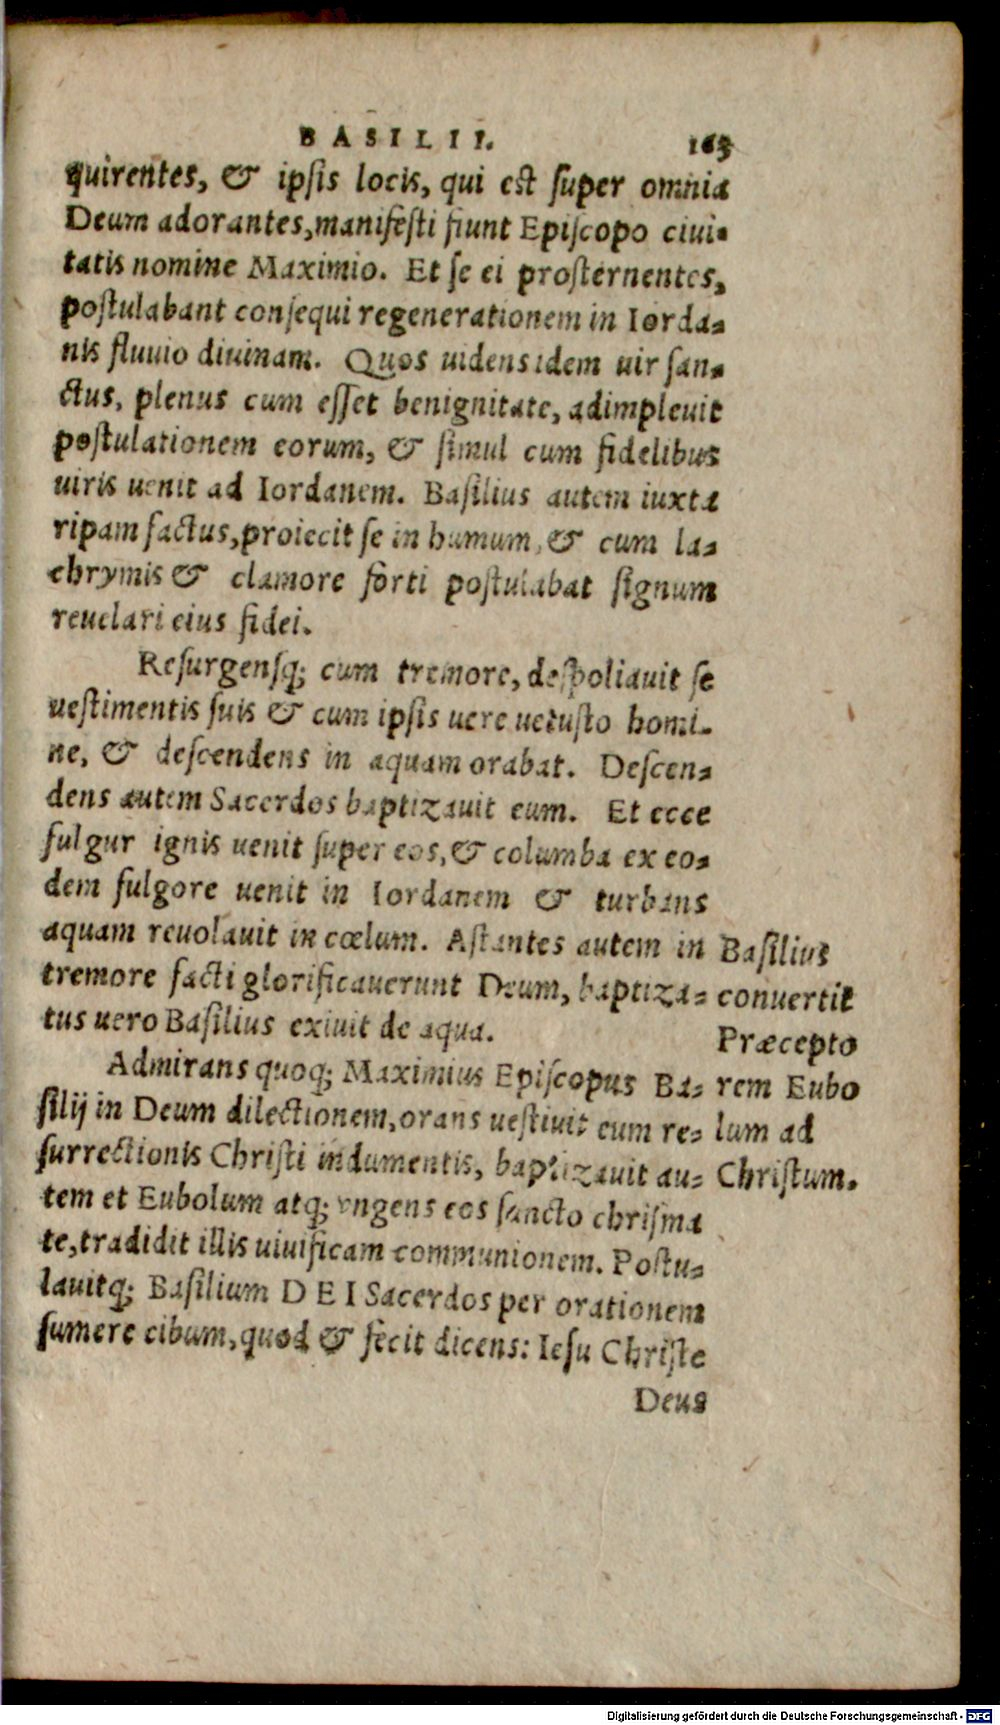 BASILII. 163
quirentes, & ipsis locis, qui est super omnia
Deum adorantes, manifesti fiunt Episcopo ciui-
tatis nomine Maximio. Et se ei prosternentes,
postulabant consequi regenerationem in Iorda-
nis fluuio diuinam. Quos uidens idem uir san-
ctus, plenus cum esset benignitate, adimpleuit
postulationem eorum, & simul cum fidelibus
uiris uenit ad Iordanem. Basilius autem iuxta
ripam factus, proiecit se in humum, & cum la-
chrymis & clamore forti postulabat signum
reuelari eius fidei.
Resurgensq; cum tremore, despoliauit se
uestimentis suis & cum ipsis uere uetusto homi-
ne, & descendens in aquam orabat. Descen-
dens autem Sacerdos baptizauit eum. Et ecce
fulgur ignis uenit super eos, & columba ex eo-
dem fulgore uenit in Iordanem & turbans
aquam reuolauit in cœlum. Astantes autem in
tremore facti glorificauerunt Deum, baptiza-
tus uero Basilius exiuit de aqua.
Admirans quoq; Maximius Episcopus Ba-
silij in Deum dilectionem, orans uestiuit eum re-
surrectionis Christi indumentis, baptizauit au-
tem et Eubolum atq; vngens eos sancto chrisma
te, tradidit illis uiuificam communionem. Postu-
lauitq; Basilium DEI Sacerdos per orationem
sumere cibum, quod & fecit dicens: Iesu Christe
Deus
Basilius
conuertit
Præcepto
rem Eubo
lum ad
Christum.
Digitalisierung gefördert durch die Deutsche Forschungsgemeinschaft - DFG